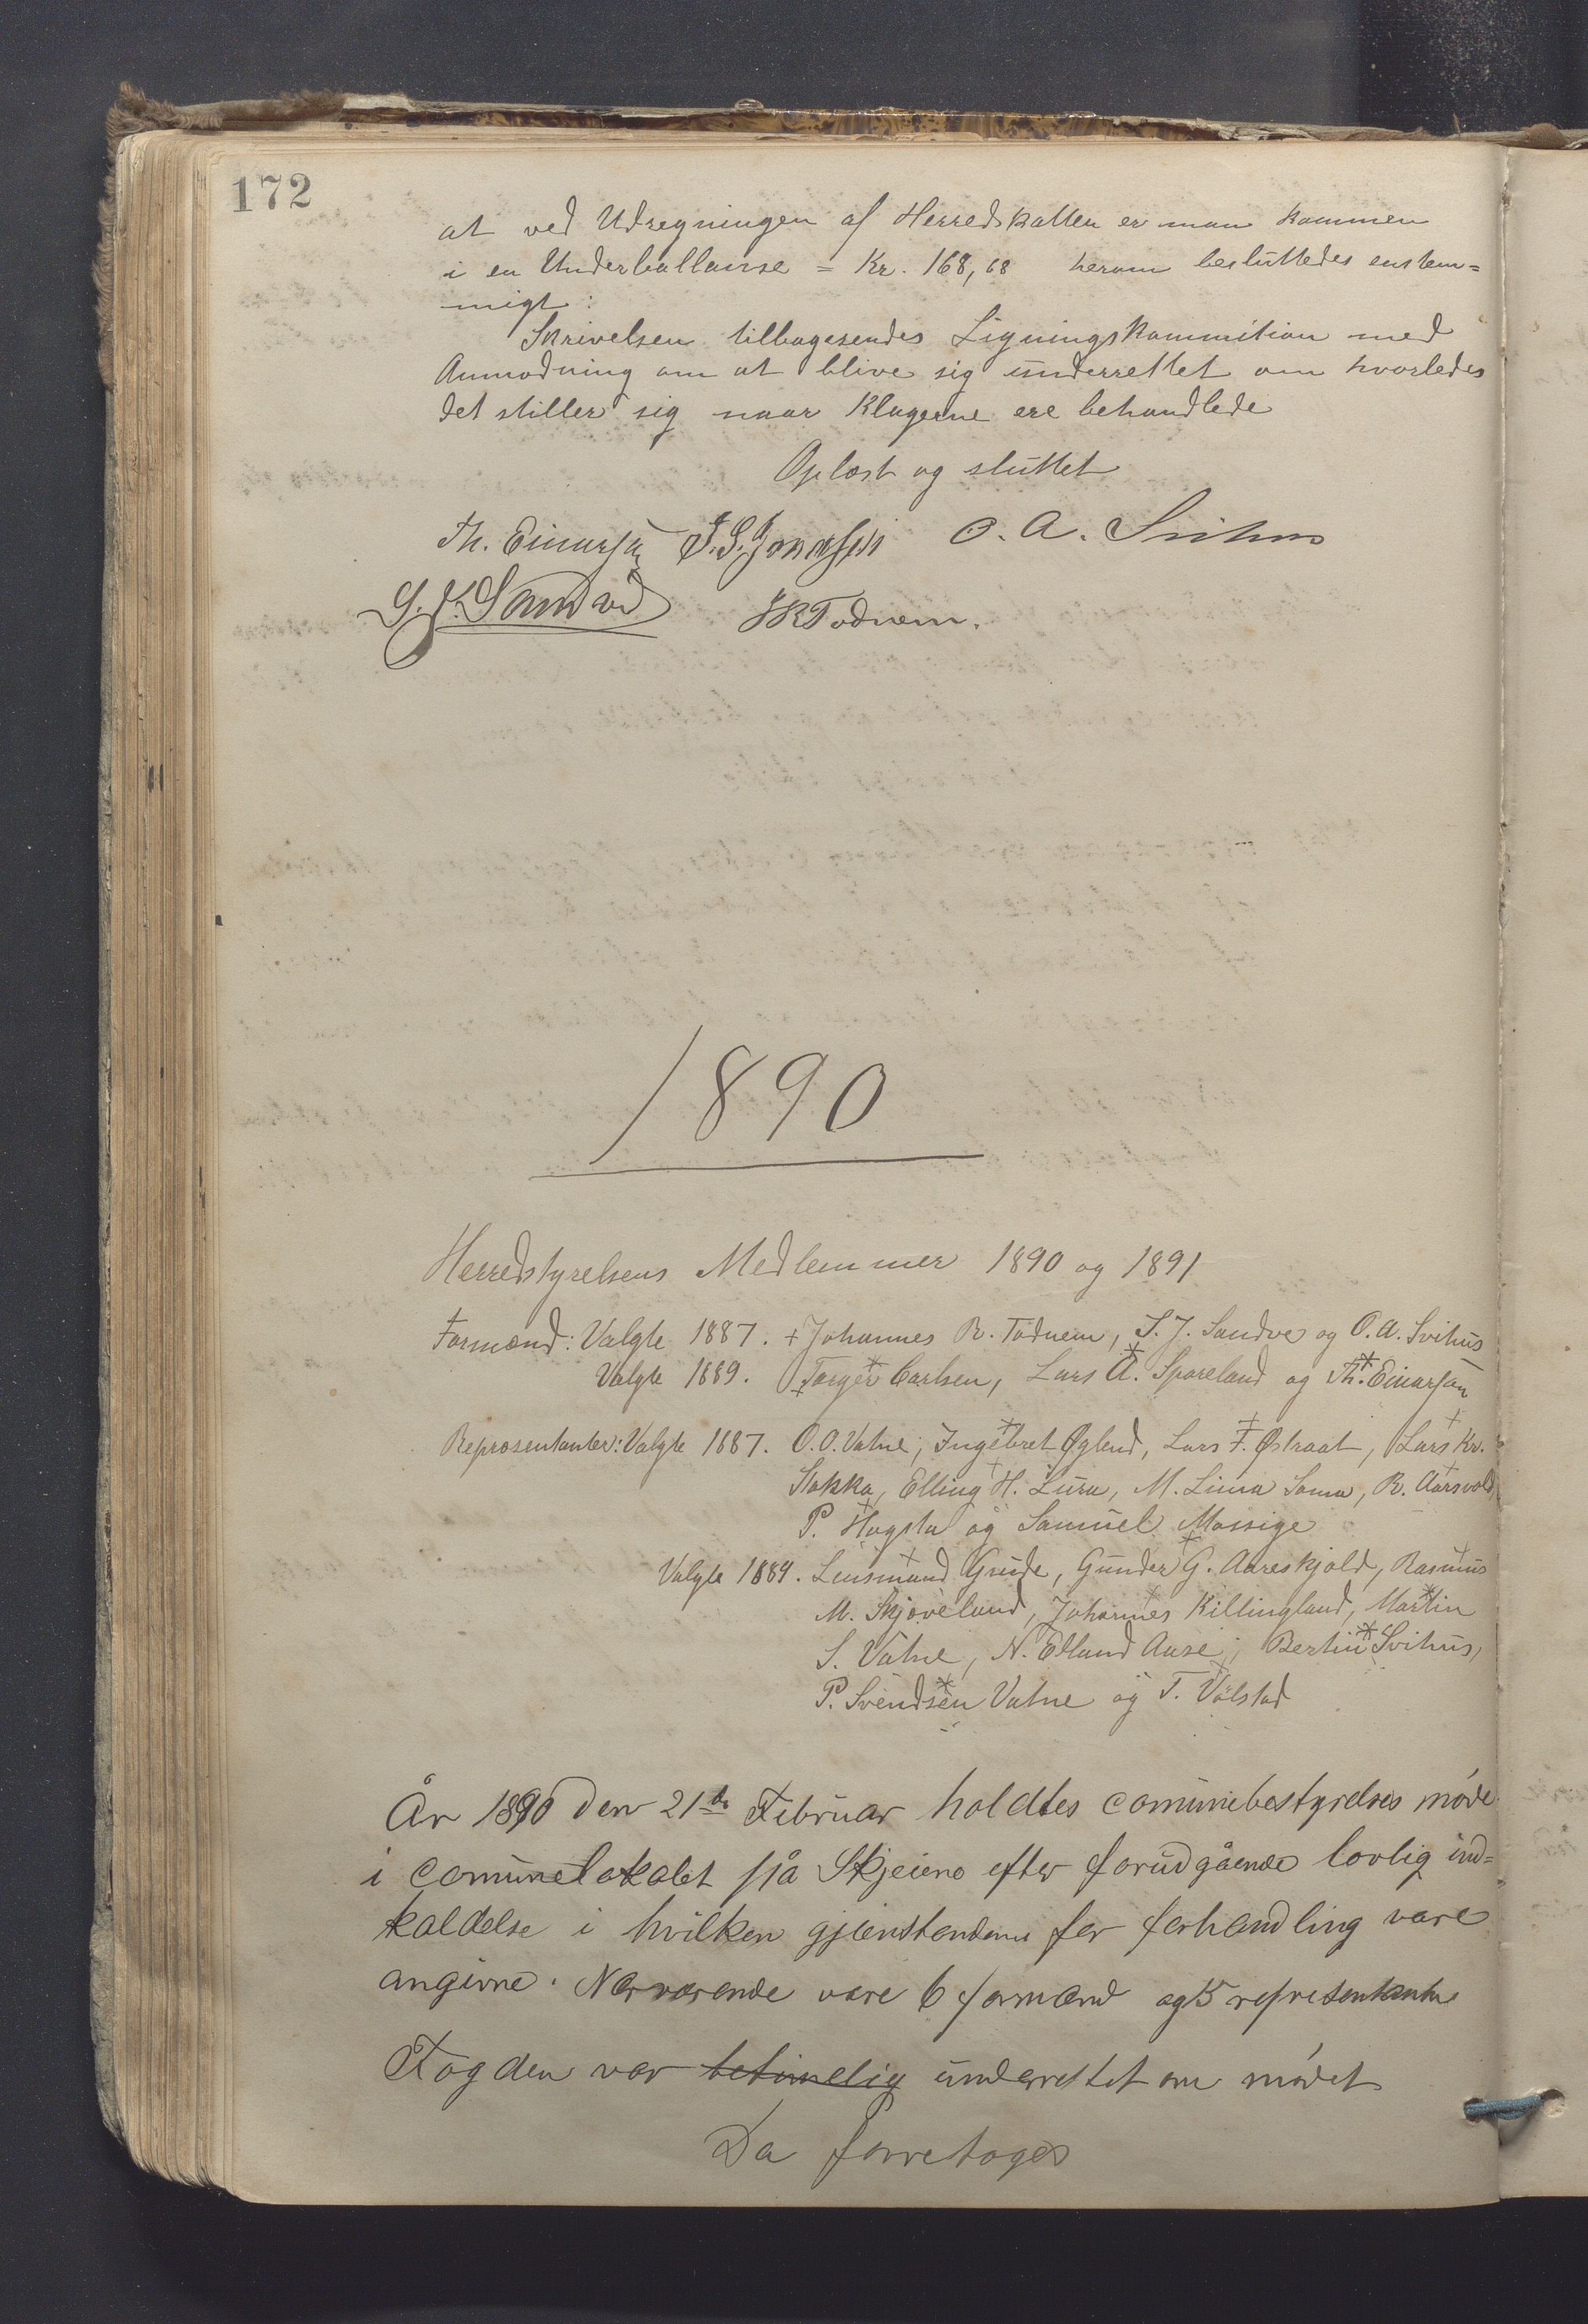 172
at ved Udregningen af Herredskatten er man kommen
i en Underballanse = Kr. 168,68 herom besluttedes enstem=
migt:
Skrivelsen tilbagesendes Ligningskommition med
Anmodning om at blive sig underrettet om hvorledes
det stiller sig naar Klagerne ere behandlede
Oplæst og sluttet
Th. Einarsen J. S. Jonassen O. A. Svihus
S. J. Sandve JRTodnem.
1890
Herredstyrelsens Medlemmer 1890 og 1891
Formænd: Valgte 1887. + Johannes R. Todnem, S. J. Sandve og O. A. Svihus
Valgte 1889. Torger Carlsen, Lars A. Sporeland og Th. Einarsen
Repræsentanter: Valgte 1887. O. O. Vatne, Ingebret Øglend, Lars F. Østraat, Lars Kr.
Stokka, Elling H. Lura, M. Lima Soma, R. Aarsvold,
P. Hogsta og Samuel Mossige
Valgte 1889. Lensmand Grude, Gunder G. Aareskjold, Rasmus
M. Skjæveland, Johannes Killingland, Martin
S. Vatne, N. Edland Aase, Bertin Svihus,
P. Svendsen Vatne og T. Vølstad
År 1890 den 21de Februar holdtes comunebestyrelses møde
i comunelokalet på Skjeiene efter forudgående lovlig ind=
kaldelse i hvilken gjenstandene for forhandling vare
angivne. Nærværende vare 6 formænd og 15 representanter
Fogden var betimelig underrettet om mødet
Da foretoges